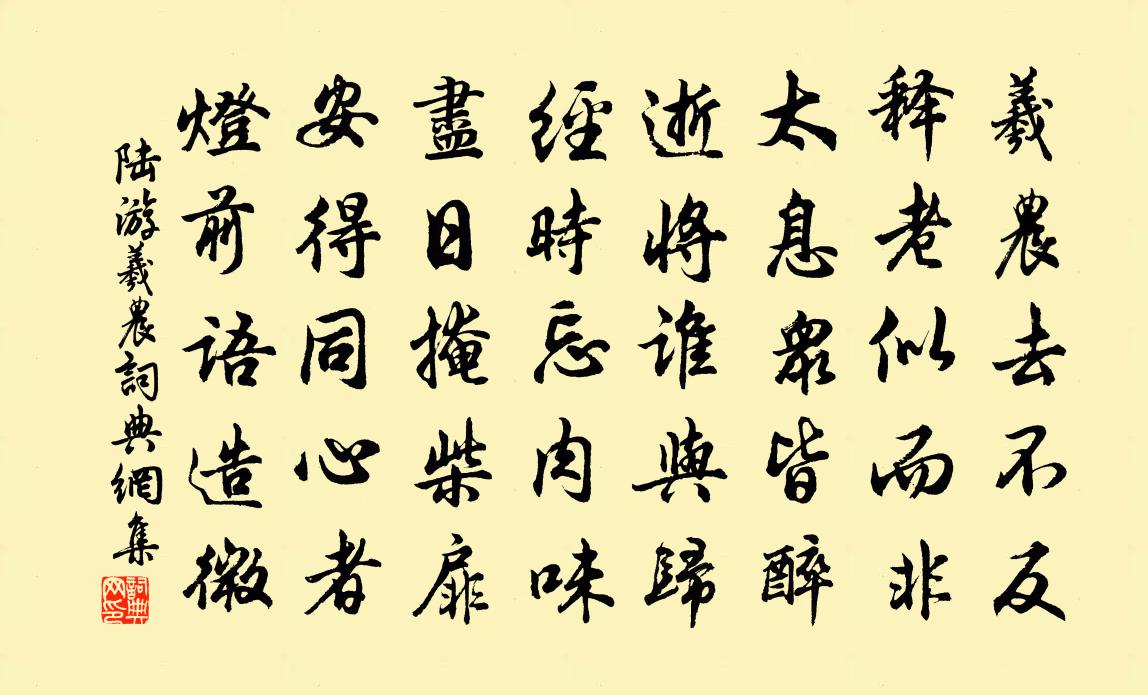 羲農去不反
释老似而非
太息衆皆醉
逝將誰與歸
經時忘肉味
盡日掩柴扉
安得同心者
燈前語造微
陆游羲農詞典網集
詞典网印